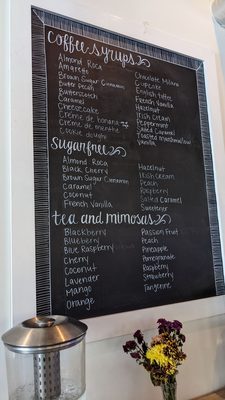 coffee syrups
Almond Roca
Amaretto
Brown Sugar Cinnamon
Butter Pecan
Butterscotch
Caramel
Cheesecake
Creme de banana
Creme de menthe
Cookie dough
Chocolate Milano
Cupcake
English Toffee
French Vanilla
Hazelnut
Irish Cream
Peppermint
Salted Caramel
Toasted marshmallow
Vanilla
Sugarfree
Almond Roca
Black Cherry
Brown Sugar Cinnamon
Caramel
Coconut
French Vanilla
Hazelnut
Irish Cream
Peach
Raspberry
Salted Caramel
Sweetener
tea and mimosas
Blackberry
Blueberry
Blue Raspberry
Cherry
Coconut
Lavender
Mango
Orange
Passion Fruit
Peach
Pineapple
Pomegranate
Raspberry
Strawberry
Tangerine